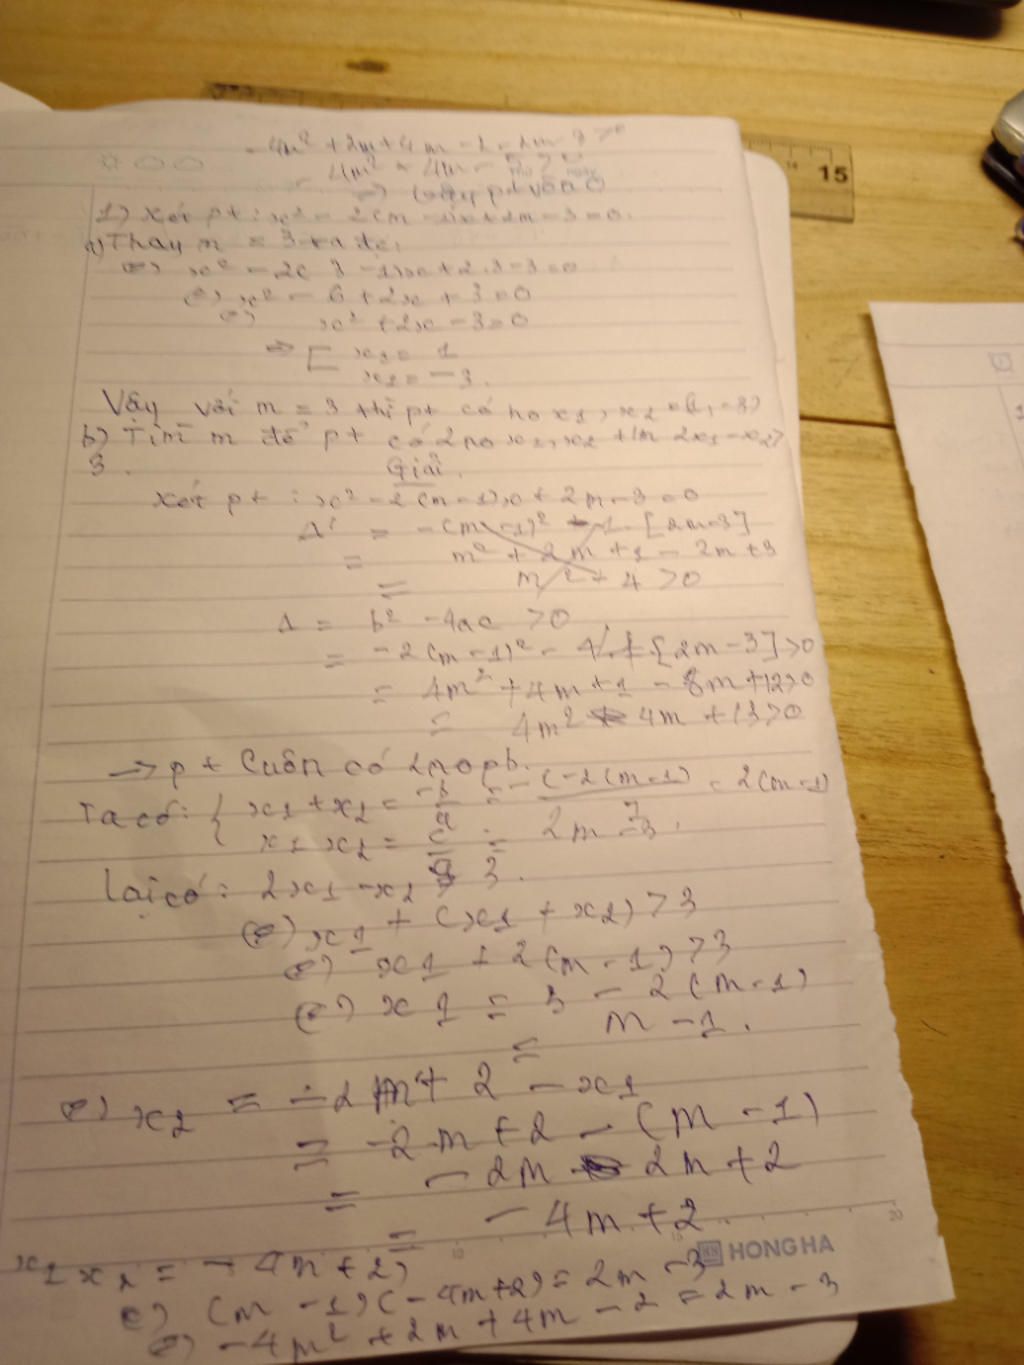 - 4m² + 2m + 4m - 2 - 2m - 3 > 0
- 4m² - 4m - 5 > 0
pt vô n0
15
1) Xét pt : x² - 2(m - 1)x + 2m - 3 = 0.
a) Thay m = 3 ta đc:
(=) x² - 2( 3 - 1)x + 2.3 - 3 = 0
(=) x² - 6 + 2x + 3 = 0
(=) x² + 2x - 3 = 0
=> [ x1 = 1
x2 = -3.
Vậy với m = 3 thì pt có no x1, x2 = (1, -3)
b) Tìm m để pt có 2 no x1, x2 t/m 2x1 - x2 >
3. Giải.
Xét pt : x² - 2(m - 1)x + 2m - 3 = 0
Δ' = -(m - 1)² - 1. [2m - 3]
= m² + 2m + 1 - 2m + 3
= m² + 4 > 0
Δ = b² - 4ac > 0
= -2(m - 1)² - 4.1.[2m - 3] > 0
= 4m² + 4m + 1 - 8m + 12 > 0
= 4m² - 4m + 13 > 0
-> pt luôn có 2 no pb.
Ta có: { x1 + x2 = -b/a = -(-2(m - 1)) = 2(m - 1)
x1 x2 = c/a = 2m - 3.
Lại có: 2x1 - x2 > 3.
(=) x1 + (x1 + x2) > 3
(=) x1 + 2(m - 1) > 3
(=) x1 = 3 - 2(m - 1)
= m - 1.
(=) x2 = -2m + 2 - x1
= -2m + 2 - (m - 1)
= - 2m 2m + 2
= - 4m + 2
20
HONG HA
x1 x2 = - 4m + 2)
(=) (m - 1)(- 4m + 2) = 2m - 3
(=) - 4m² + 2m + 4m - 2 = 2m - 3